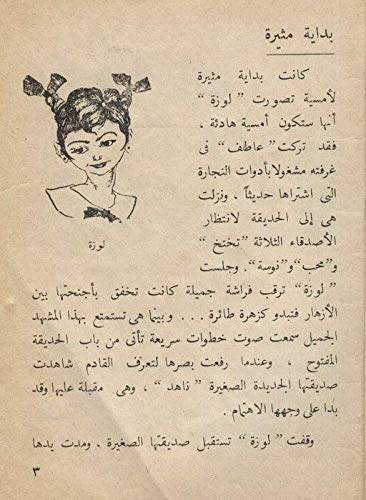 بداية مثيرة
كانت بداية مثيرة
لأمسية تصورت " لوزة "
أنها ستكون أمسية هادئة ،
فقد تركت " عاطف " فى
غرفته مشغولا بأدوات النجارة
التى اشتراها حديثاً ، ونزلت
هى إلى الحديقة لانتظار
الأصدقاء الثلاثة " تختخ "
و " محب " و " نوسة " . وجلست
لوزة
" لوزة " ترقب فراشة جميلة كانت تخفق بأجنحتها بين
الأزهار فتبدو كزهرة طائرة . . . وبينما هى تستمتع بهذا المشهد
الجميل سمعت صوت خطوات سريعة تأتى من باب الحديقة
المفتوح ، وعندما رفعت بصرها لتعرف القادم شاهدت
صديقتها الجديدة الصغيرة " ناهد " ، وهى مقبلة عليها وقد
بدا على وجهها الاهتمام .
وقفت " لوزة " تستقبل صديقتها الصغيرة ، ومدت يدها
٣